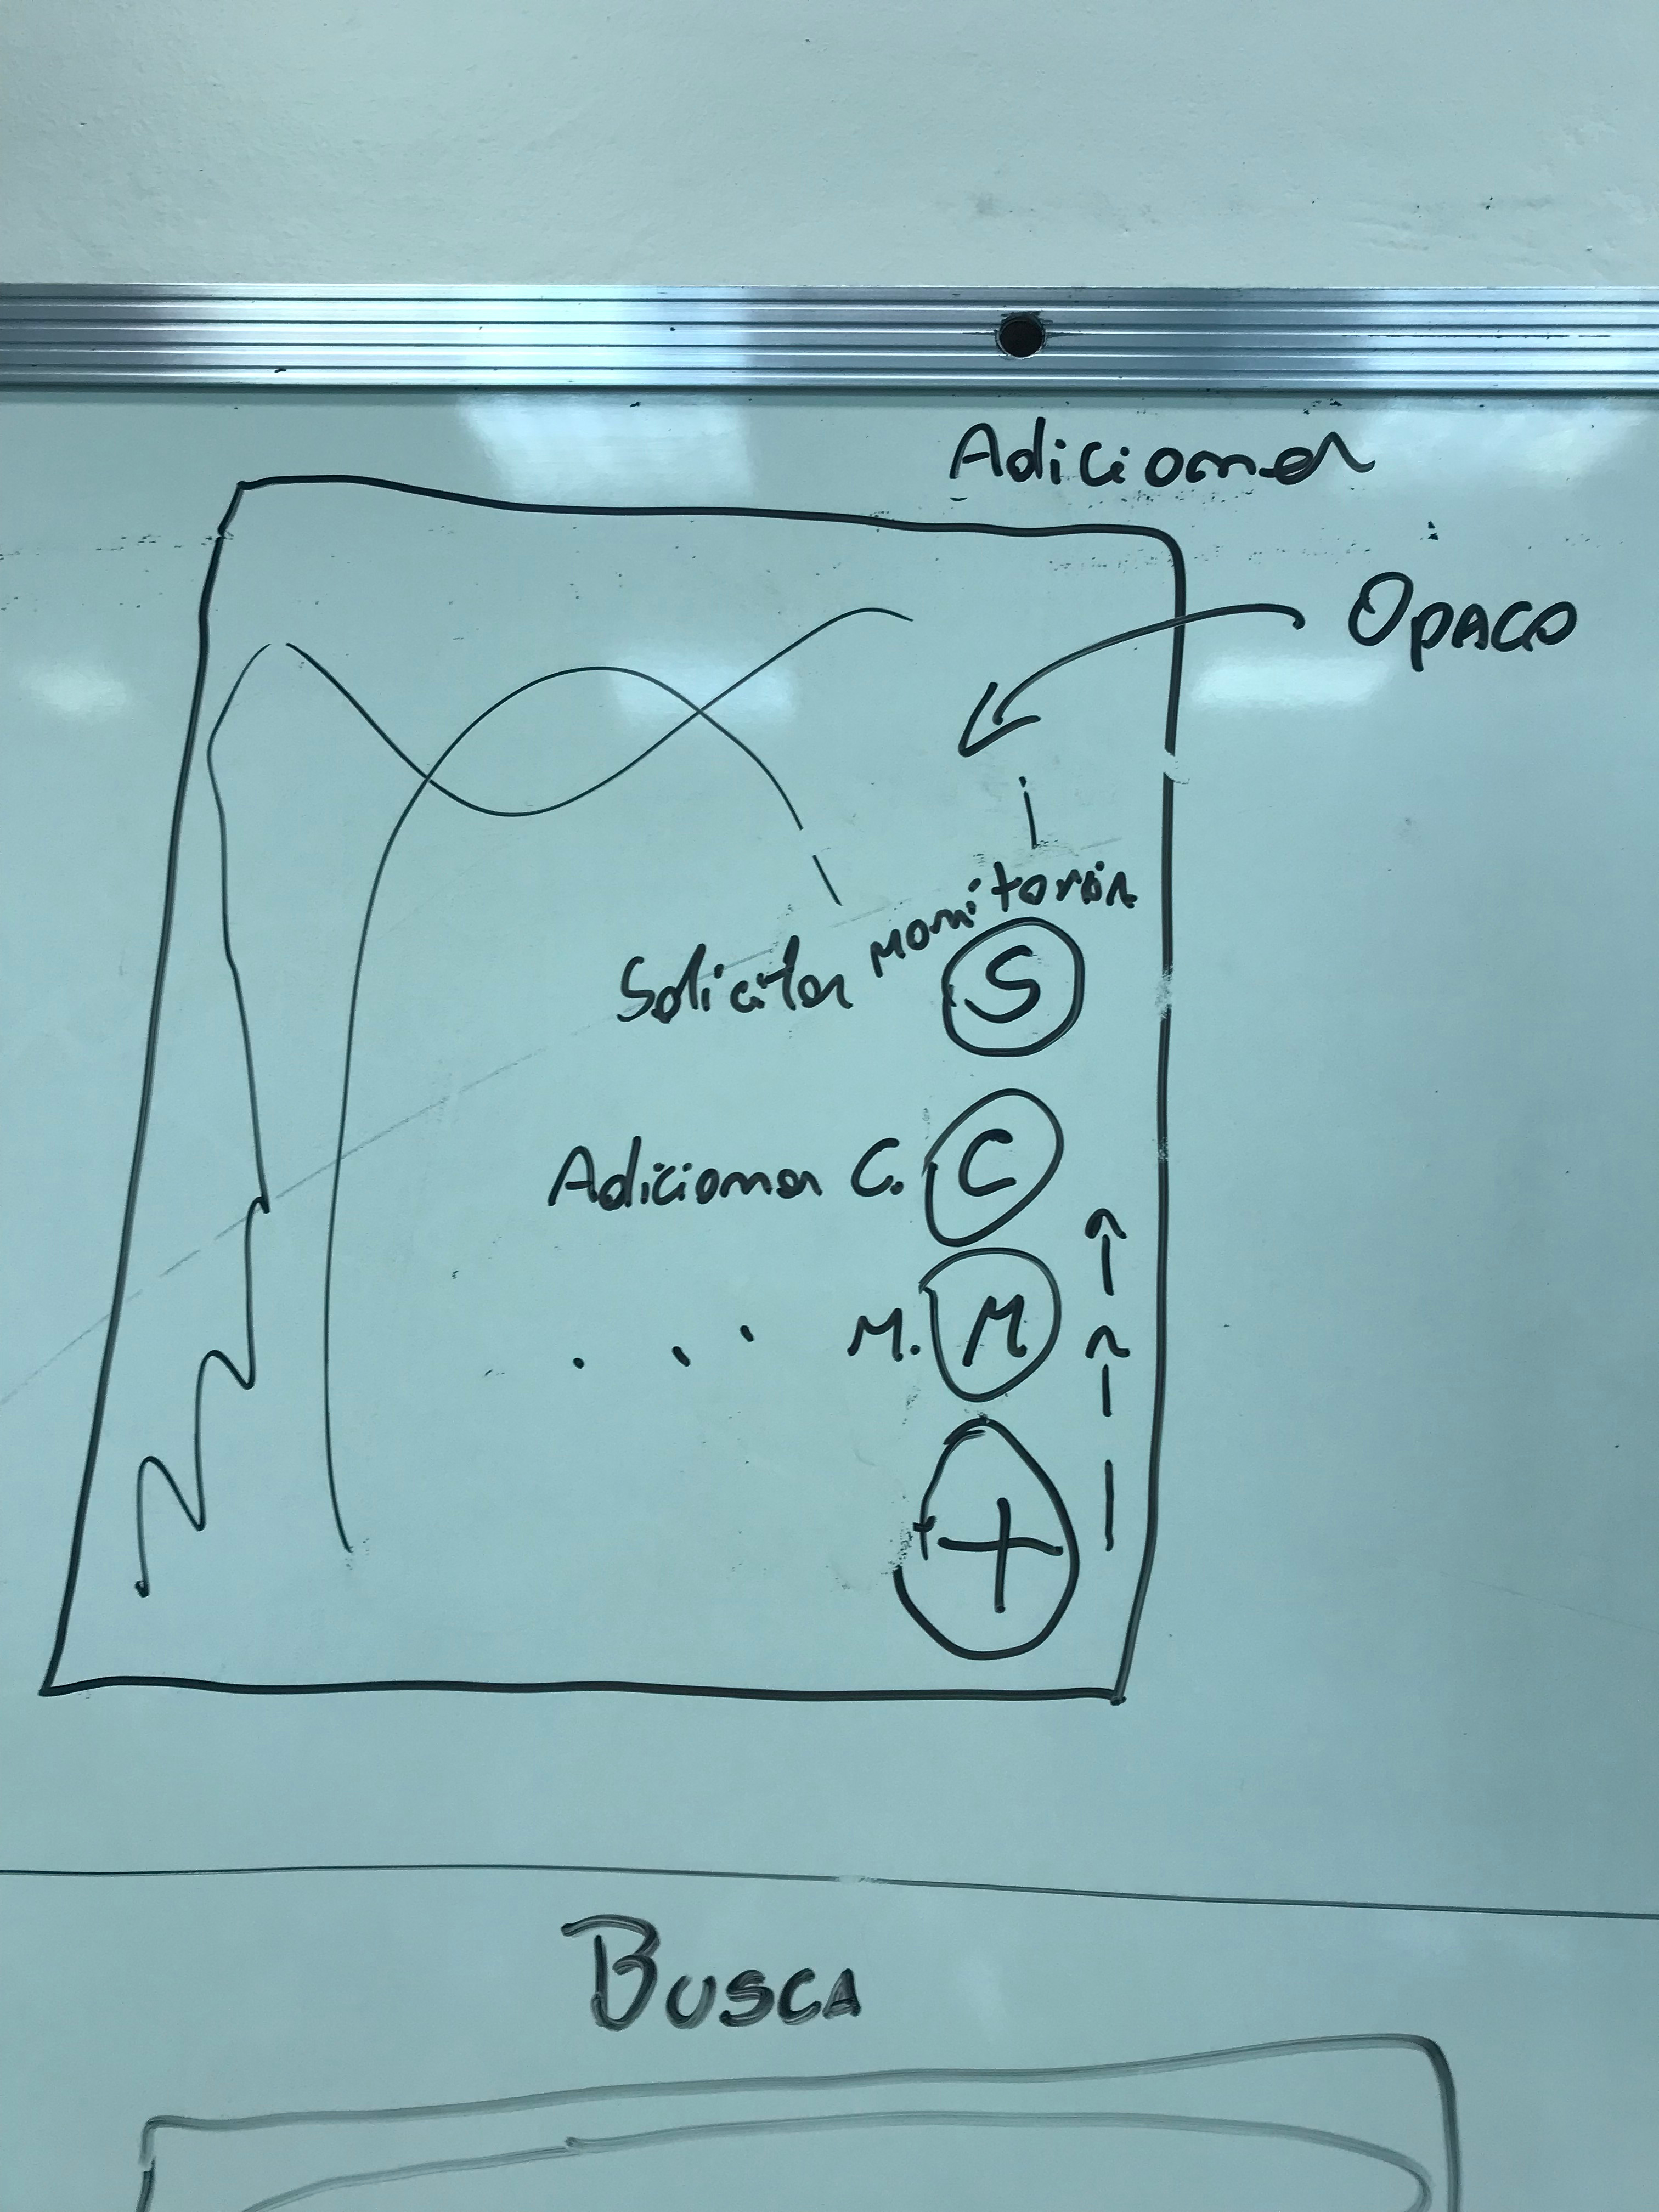 Adicionar
Opaco
Solicitar monitoria
S
Adicionar C.
C
M.
M
+
BUSCA